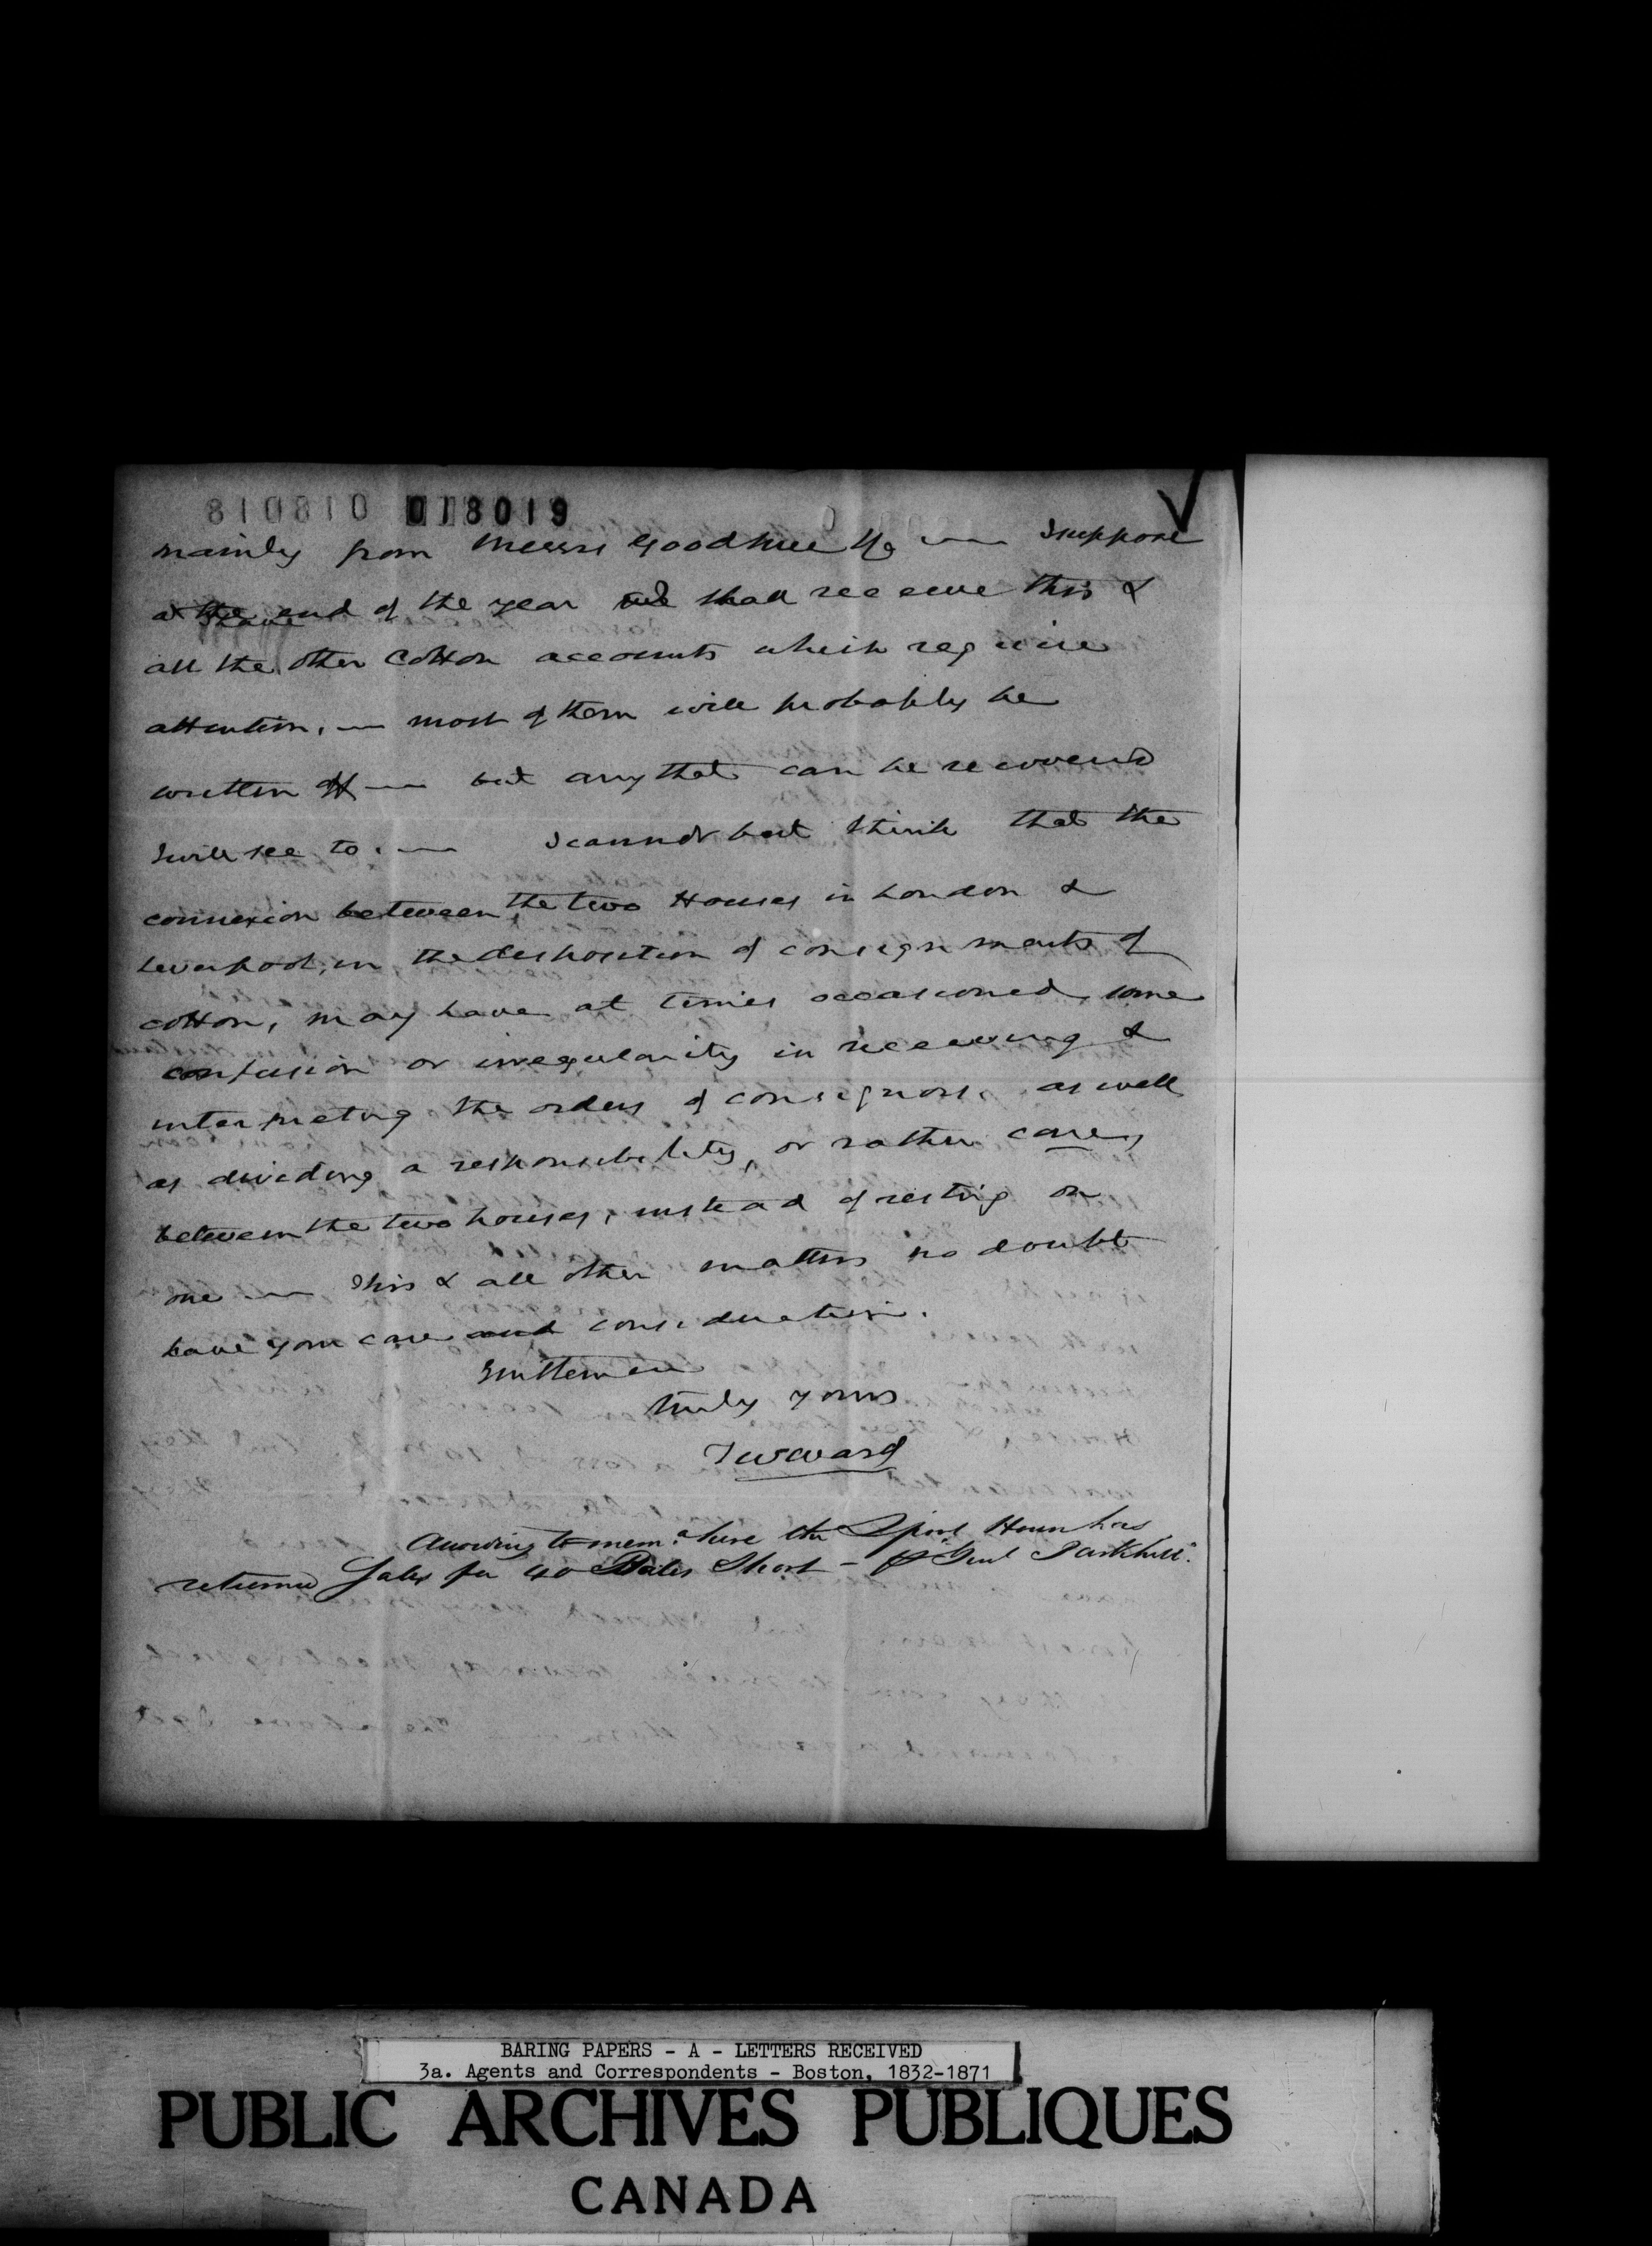 810810 018019
mainly from Messrs Goodhue & Co — I suppose
at the end of the year we shall receive this &
all the other Cotton accounts which require
attention. — most of them will probably be
written off — but any that can be recovered
I will see to. — I cannot but think that the
connexion between the two Houses in London &
Liverpool, in the disposition of consignments of
cotton, may have at times occasioned some
confusion or irregularity in receiving &
interpreting the orders of consignors, as well
as dividing a responsibility, or rather care,
between the two houses, instead of resting on
one — This & all other matters no doubt
have your care and consideration.
Gentlemen
truly yours
TWWard
According to mem. here the Lpool House has
returned Sales for 40 Bales Short - "Genl Parkhill".
BARING PAPERS - A - LETTERS RECEIVED
3a. Agents and Correspondents - Boston, 1832-1871
PUBLIC ARCHIVES PUBLIQUES
CANADA